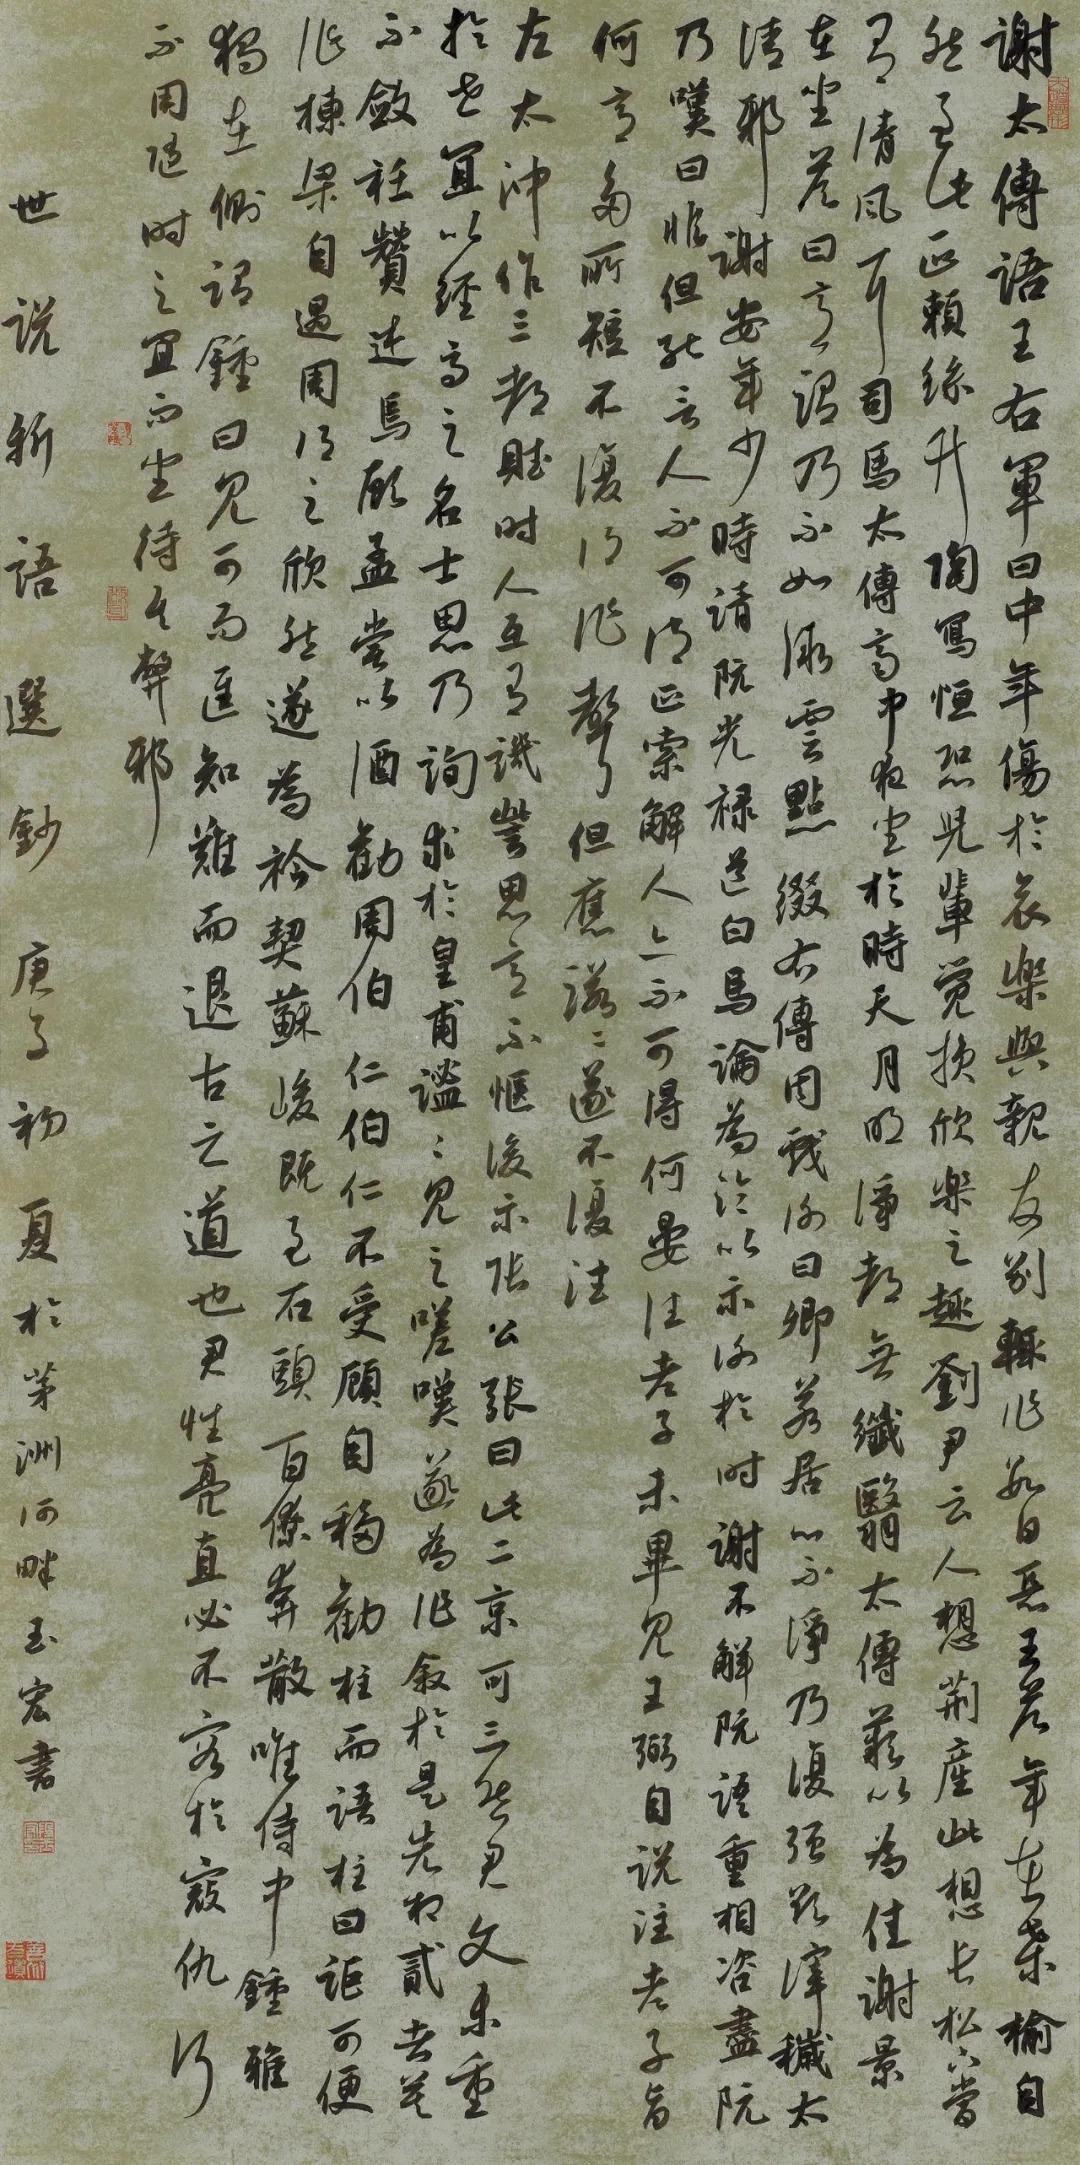 謝太傅語王右軍曰中年傷於哀樂與親友別輒作數日惡王答年在桑榆自
然至此正賴絲竹陶寫恒恐兒輩覺損欣樂之趣劉尹云人想荊產此想長松下當
有清風耳司馬太傅齋中夜坐於時天月明淨都無纖翳太傅歎以為佳謝景
在坐答曰意謂乃不如微雲點綴太傅因戲謝曰卿居心不淨乃復強欲滓穢太
清邪謝安年少時請阮光祿道白馬論為論以示謝於時謝不解阮語重相咨盡阮
乃嘆曰非但能言人不可得正索解人亦不可得何晏注老子未畢見王弼自說注老子旨
何意多所短不復得作聲但應諾諾遂不復注
左太沖作三都賦時人互有譏訾思意不愜後示張公張曰此二京可三然君文未重
於世宜以經高之名士思乃詢求於皇甫謐謐見之嗟嘆遂為作叙於是先相貳者莫
不斂衽贊述焉顧孟嘗以酒勸周伯仁伯仁不受顧自移勸柱而語柱曰詎可便
作棟梁自遇周得之欣然遂為衿契蘇峻既至石頭百僚奔散唯侍中鍾雅
獨在側謂鍾曰見可而進知難而退古之道也君性亮直必不容於寇仇何
不用隨時之宜而坐待其弊邪
世說新語選鈔 庚子初夏於茅洲河畔玉宏書